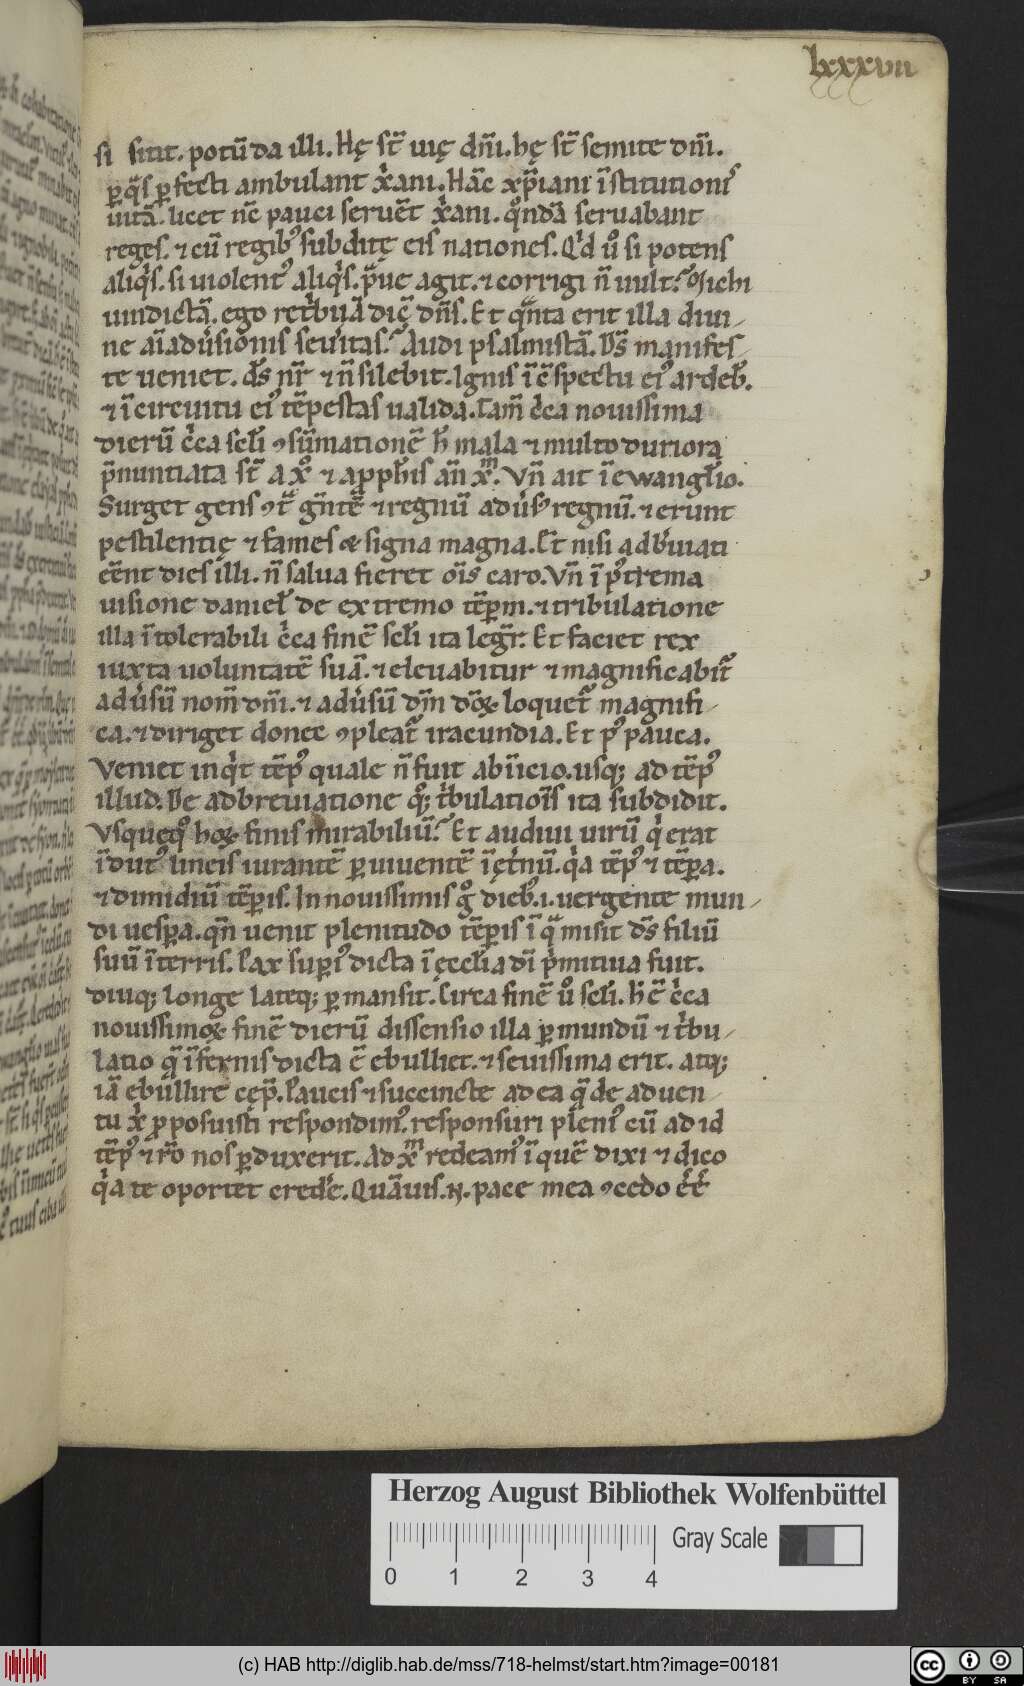 lxxxvii
si sitit. potū da illi. Hę st̄ uię dn̄i. hę st̄ semite dn̄i.
ꝑ q̄s ꝑfecti ambulant xͥani. Hāc xp̄iani īstitutionis
uitā. licet nc̄ pauci seruēt xͥani. qͦndā seruabant
reges. ⁊ cū regibꝰ subditę eis nationes. Qͥd uͦ si potens
aliqͥs. si uiolentꝰ aliqͥs. p̄ue agit. ⁊ corrigi n̄ uult? Michi
uindictā. ego retͥbuā dic̄ dn̄s. Et qͣnta erit illa diui-
ne aīaduͥsionis seuitas? Audi psalmistā. Ds̄ manifes-
te ueniet. ds̄ nr̄ ⁊ n̄ silebit. Ignis ī c̄spectu eiꝰ ardeb̄.
⁊ ī circuitu eiꝰ tēpestas ualida. Tam̄ cͥca nouissima
dierū cͥca sclͥi ꝯsūmationē h̄ mala ⁊ multo duriora
p̄nuntiata st̄ a xͦ ⁊ a ꝓph̄is an̄ xͫ. Vn̄ ait ī ewangl̄io.
Surget gens ꝯtͣ gn̄tē ⁊ regnū aduͥsꝰ regnū. ⁊ erunt
pestilentię ⁊ fames & signa magna. Et nisi adbͥuiati
eēnt dies illi. n̄ salua fieret oīs caro. Vn̄ ī pͦtrema
uisione daniel̄ de extremo tēꝑm. ⁊ tribulatione
illa ītolerabili cͥca finē scl̄i ita legͥr. Et faciet rex
iuxta uoluntatē suā. ⁊ eleuabitur ⁊ magnificabit᷑
aduͥsū nom̄ dn̄i. ⁊ aduͥsū dm̄ doꝝ loquet᷑ magnifi-
ca. ⁊ diriget donec ꝯpleat᷑ iracundia. Et pꝰ pauca.
Veniet inqͥt tēpꝰ quale n̄ fuit ab īicio. usq; ad tēpꝰ
illud. De adbreuiatione qͦ; tͥbulatiōis ita subdidit.
Vsquequͦ hoꝝ finis mirabiliū? Et audiui uirū qͥ erat
īdutꝰ lineis iurantē ꝑ uiuentē ī ęt̄nū. qͥa tēpꝰ ⁊ tēꝑa.
⁊ dimidiū tēꝑis. In nouissimis gͦ diebꝰ .i. uergente mun-
di uesꝑa. qn̄ uenit plenitudo tēꝑis ī qͣ misit ds̄ filiū
suū ī terris. Pax suꝑiꝰ dicta ī ęccl̄ia dī pͥmitiua fuit.
diuq; longe lateq; ꝑmansit. Circa finē uͦ scl̄i. h̄ ē cͥca
nouissimoꝝ finē dierū dissensio illa ꝑ mundū ⁊ tͥbu-
latio qͣ īfernis dicta ē ebulliet. ⁊ seuissima erit. atq;
iā ebullire cęp̄. Paucis ⁊ succincte ad ea qͣ de aduen-
tu xͥ ꝓposuisti respondimꝰ. responsuri pleniꝰ cū ad id
tēpꝰ ⁊ r̄o nos ꝑduxerit. Ad xͫ redeamꝰ ī quē dixi ⁊ dico
qͥa te oportet credͤe. Quāuis .N. pace mea ꝯcedo eͥēͥ
Herzog August Bibliothek Wolfenbüttel
Gray Scale
0 1 2 3 4
(c) HAB http://diglib.hab.de/mss/718-helmst/start.htm?image=00181
cc BY SA